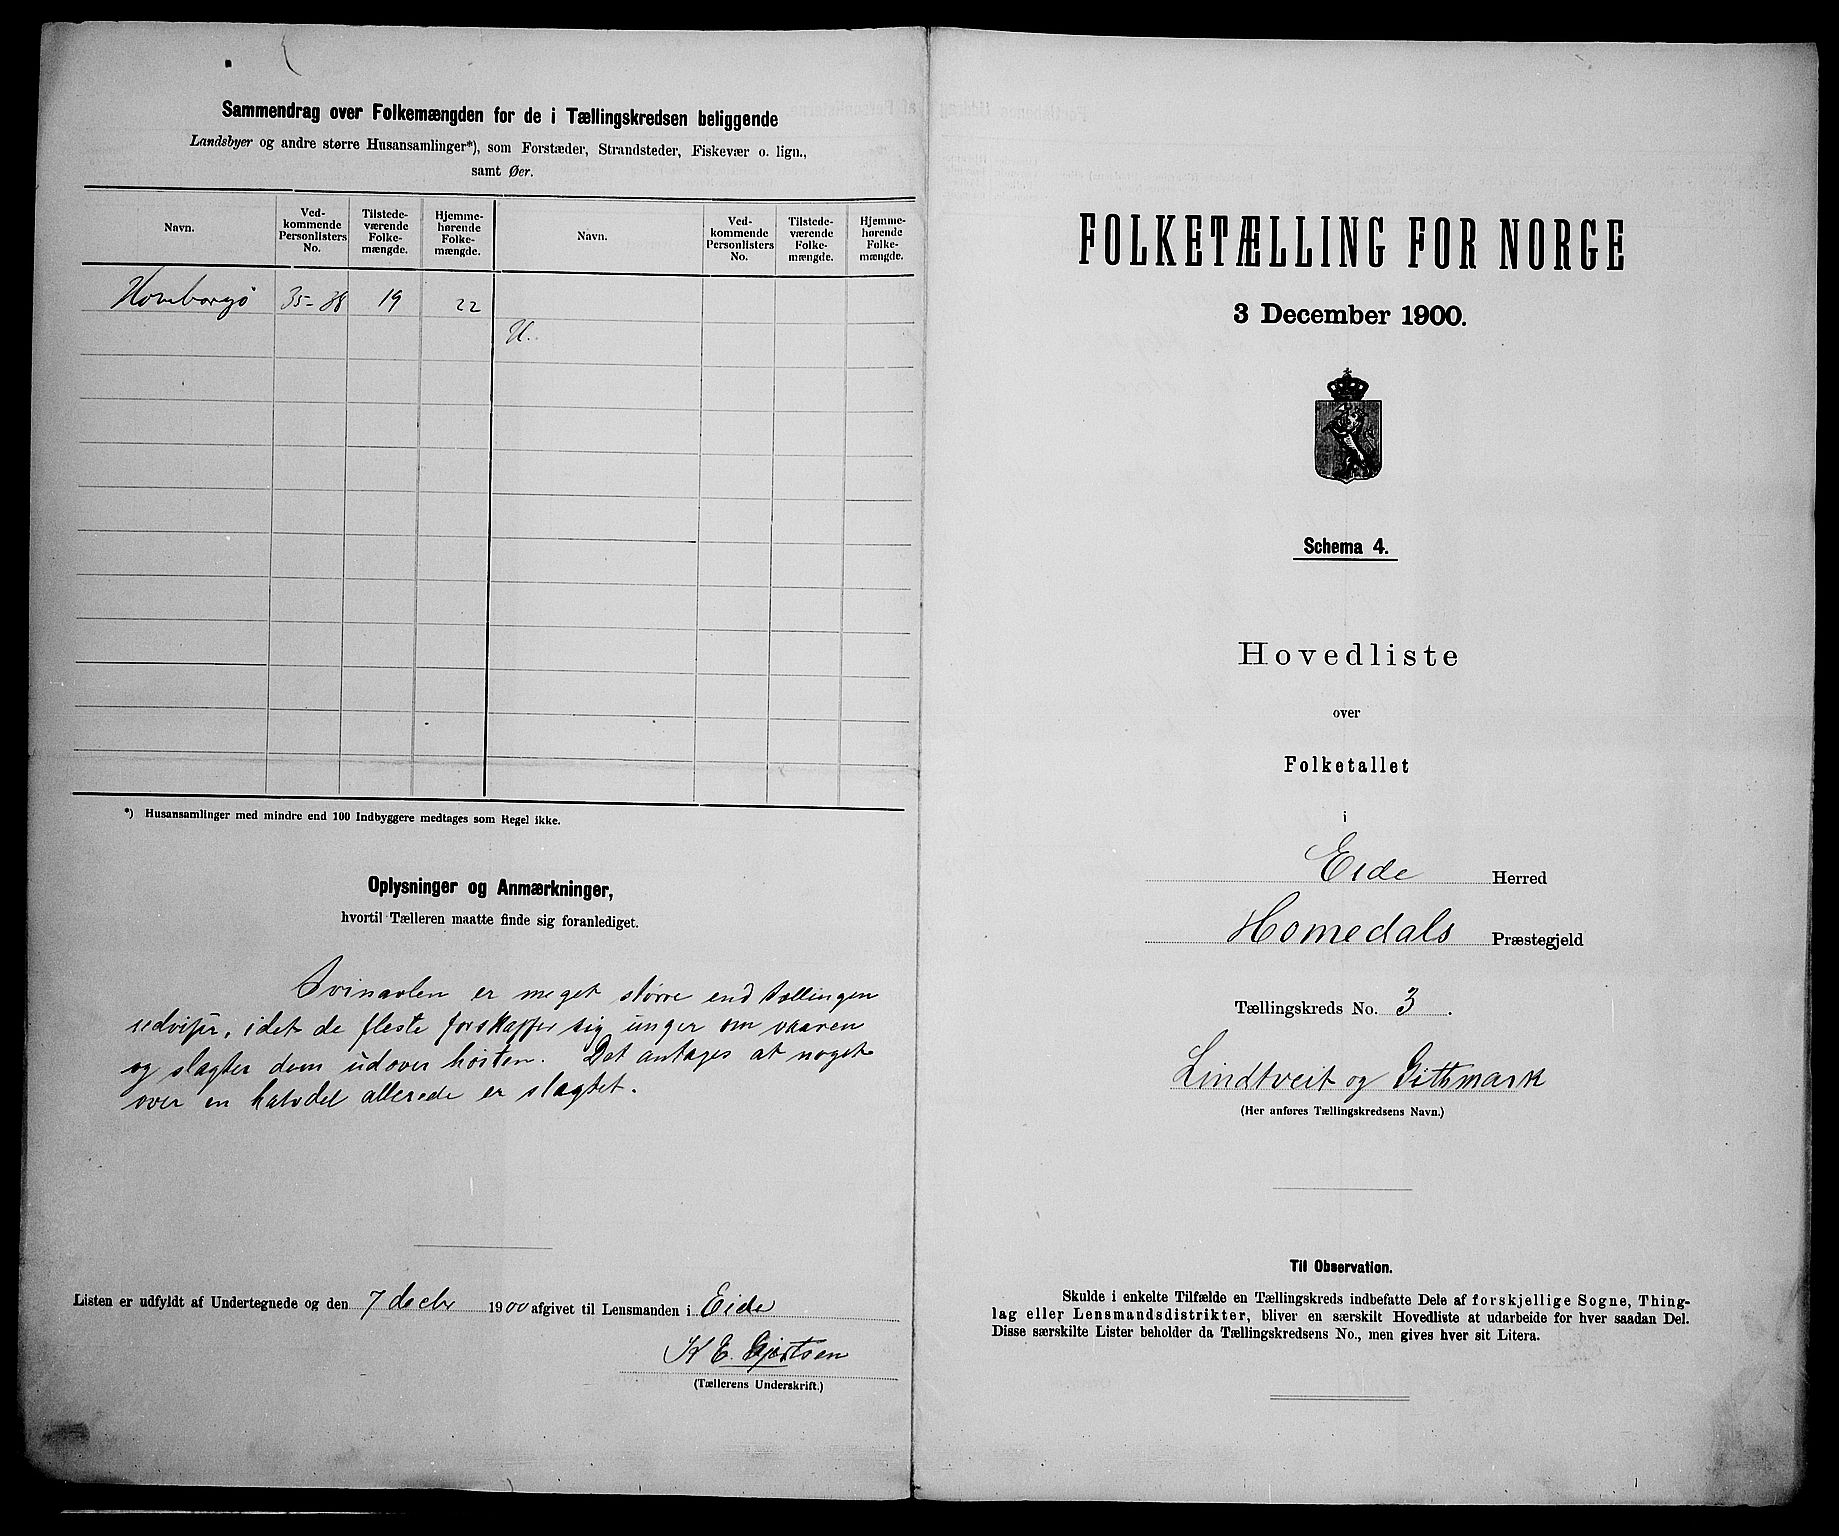 Sammendrag over Folkemængden for de i Tællingskredsen beliggende
Landsbyer og andre større Husansamlinger*), som Forstæder, Strandsteder, Fiskevær o. lign.,
samt Øer.
Navn. Ved-kommende Personlisters No. Tilstede-værende Folke-mængde. Hjemme-hørende Folke-mængde. Navn. Ved-kommende Personlisters No. Tilstede-værende Folke-mængde. Hjemme-hørende Folke-mængde.
Homborgø 35-38 19 22
H.
*) Husansamlinger med mindre end 100 Indbyggere medtages som Regel ikke.
Oplysninger og Anmærkninger,
hvortil Tælleren maatte finde sig foranlediget.
Svinavlen er meget større end tællingen
udviser, idet de fleste forskaffer sig unger om vaaren
og slagter dem udover høsten. Det antages at noget
over en halvdel allerede er slagtet.
Listen er udfyldt af Undertegnede og den 7 decbr 1900 afgivet til Lensmanden i Eide
K E. Gjertsen
(Tællerens Underskrift.)
FOLKETÆLLING FOR NORGE
3 December 1900.
Schema 4.
Hovedliste
over
Folketallet
i
Eide Herred
Homedals Præstegjeld
Tællingskreds No. 3.
Lindtveit og Gittmark
(Her anføres Tællingskredsens Navn.)
Til Observation.
Skulde i enkelte Tilfælde en Tællingskreds indbefatte Dele af forskjellige Sogne, Thing-
lag eller Lensmandsdistrikter, bliver en særskilt Hovedliste at udarbeide for hver saadan Del.
Disse særskilte Lister beholder da Tællingskredsens No., men gives hver sit Litera.